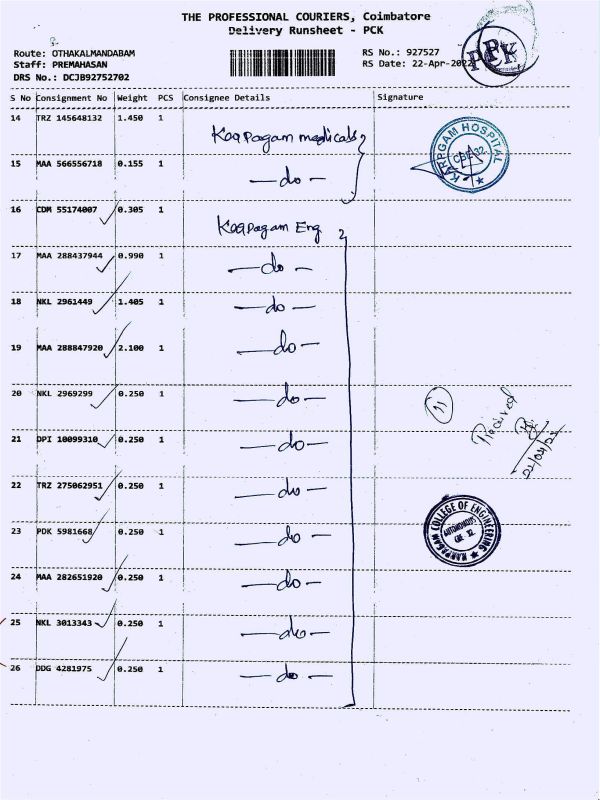 THE PROFESSIONAL COURIERS, Coimbatore
Delivery Runsheet - PCK
PCK
Route: OTHAKALMANDABAM
Staff: PREMAHASAN
DRS No.: DCJB92752702
RS No.: 927527
RS Date: 22-Apr-2022
S No Consignment No Weight PCS Consignee Details Signature
14 TRZ 145648132 1.450 1 Karpagam medicals
KARPAGAM HOSPITAL
CBE-32
15 MAA 566556718 0.155 1 — do —
16 CDM 55174007 0.305 1 Karpagam Eng
17 MAA 288437944 0.990 1 — do —
18 NKL 2961449 1.405 1 — do —
19 MAA 288847920 2.100 1 — do —
20 NKL 2969299 0.250 1 — do —
11
Received
21 DPI 10099310 0.250 1 — do —
22 TRZ 275062951 0.250 1 — do —
23 PDK 5981668 0.250 1 — do —
KARPAGAM COLLEGE OF ENGINEERING
AUTONOMOUS
CBE 32
24 MAA 282651920 0.250 1 — do —
25 NKL 3013343 0.250 1 — do —
26 DDG 4281975 0.250 1 — do —